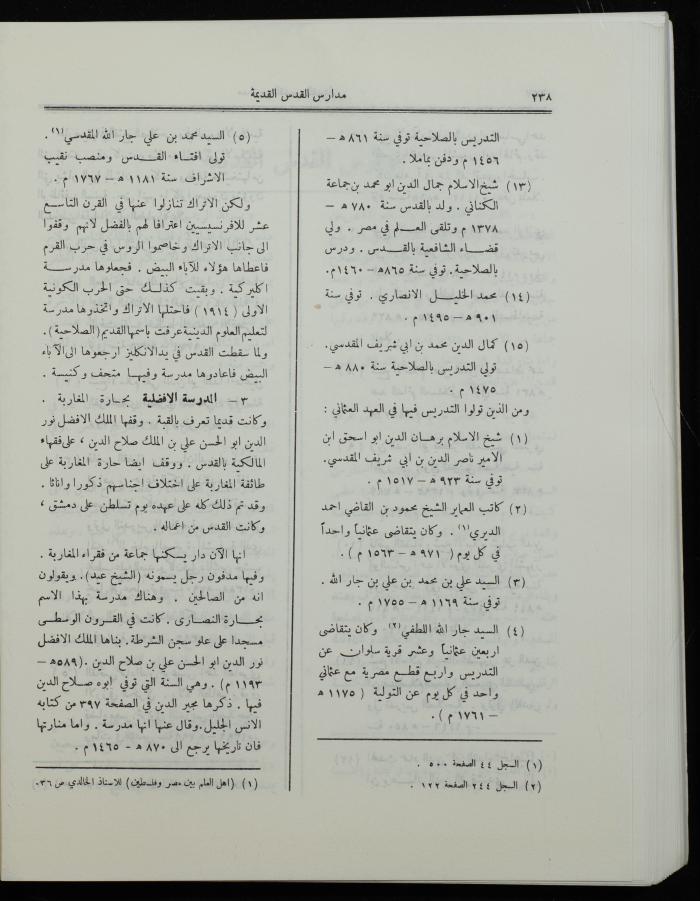 ٢٣٨
مدارس القدس القديمة
التدريس بالصلاحية توفي سنة ٨٦١ ﻫ –
١٤٥٦ م ودفن بماملا .
(١٣) شيخ الاسلام جمال الدين ابو محمد بن جماعة
الكناني . ولد بالقدس سنة ٧٨٠ ﻫ –
١٣٧٨ م وتلقى العلم في مصر . ولي
قضاء الشافعية بالقدس . ودرس
بالصلاحية . توفي سنة ٨٦٥ ﻫ – ١٤٦٠ م.
(١٤) محمد الخليل الانصاري . توفي سنة
٩٠١ ﻫ – ١٤٩٥ م .
(١٥) كمال الدين محمد بن ابي شريف المقدسي.
تولي التدريس بالصلاحية سنة ٨٨٠ ﻫ –
١٤٧٥ م .
ومن الذين تولوا التدريس فيها في العهد العثماني :
(١) شيخ الاسلام برهان الدين ابو اسحق ابن
الامير ناصر الدين بن ابي شريف المقدسي.
توفي سنة ٩٢٣ ﻫ – ١٥١٧ م .
(٢) كاتب العماير الشيخ محمود بن القاضي احمد
الديري (١) . وكان يتقاضى عثمانياً واحداً
في كل يوم ( ٩٧١ ﻫ – ١٥٦٣ م ) .
(٣) السيد علي بن محمد بن علي بن جار الله .
توفي سنة ١١٦٩ ﻫ – ١٧٥٥ م .
(٤) السيد جار الله اللطفي (٢) وكان يتقاضى
اربعين عثمانياً وعشر قرية سلوان عن
التدريس واربع قطع مصرية مع عثماني
واحد في كل يوم عن التولية ( ١١٧٥ ﻫ
– ١٧٦١ م ) .
(١) السجل ٤٤ الصفحة ٥٠٠ .
(٢) السجل ٢٤٤ الصفحة ١٢٢ .
(٥) السيد محمد بن علي جار الله المقدسي (١) .
تولى افتاء القدس ومنصب نقيب
الاشراف سنة ١١٨١ ﻫ – ١٧٦٧ م .
ولكن الاتراك تنازلوا عنها في القرن التاسع
عشر للافرنسيسيين اعترافا لهم بالفضل لانهم وقفوا
الى جانب الاتراك وخاصموا الروس في حرب القرم
فاعطاها هؤلاء للآباء البيض . فجعلوها مدرسة
اكليركية . وبقيت كذلك حتى الحرب الكونية
الاولى ( ١٩١٤ ) فاحتلها الاتراك واتخذوها مدرسة
لتعليم العلوم الدينية عرفت باسمها القديم (الصلاحية) .
ولما سقطت القدس في يد الانكليز ارجعوها الى الآباء
البيض فاعادوها مدرسة وفيها متحف وكنيسة .
٣ – المدرسة الافضلية بحارة المغاربة .
وكانت قديما تعرف بالقبة . وقفها الملك الافضل نور
الدين ابو الحسن علي بن الملك صلاح الدين ، على فقهاء
المالكية بالقدس . ووقف ايضا حارة المغاربة على
طائفة المغاربة على اختلاف اجناسهم ذكورا واناثا .
وقد تم ذلك كله على عهده يوم تسلطن على دمشق ،
وكانت القدس من اعماله .
انها الآن دار يسكنها جماعة من فقراء المغاربة .
وفيها مدفون رجل يسمونه (الشيخ عيد). ويقولون
انه من الصالحين . وهناك مدرسة بهذا الاسم
بحارة النصارى . كانت في القرون الوسطى
مسجدا على علو سجن الشرطة . بناها الملك الافضل
نور الدين ابو الحسن علي بن صلاح الدين .(٥٨٩ ﻫ –
١١٩٣ م) . وهي السنة التي توفي ابوه صلاح الدين
فيها . ذكرها مجير الدين في الصفحة ٣٩٧ من كتابه
الانس الجليل. وقال عنها انها مدرسة . واما منارتها
فان تاريخها يرجع الى ٨٧٠ ﻫ - ١٤٦٥ م .
(١) (اهل العلم بين مصر وفلسطين) للاستاذ الخالدي ص ٣٦.